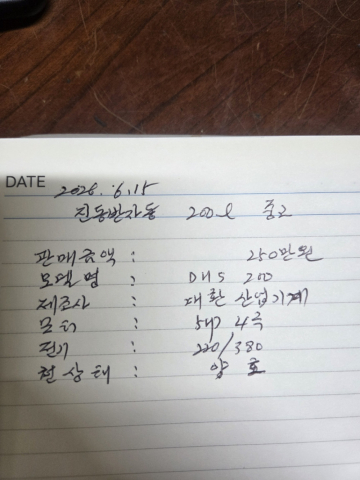 DATE 2026. 6. 15
진동반자동 200ℓ 중고
판매금액 : 250만원
모델명 : DHS 200
제조사 : 대환산업기계
모터 : 5HP 4극
전기 : 220/380
현상태 : 양호